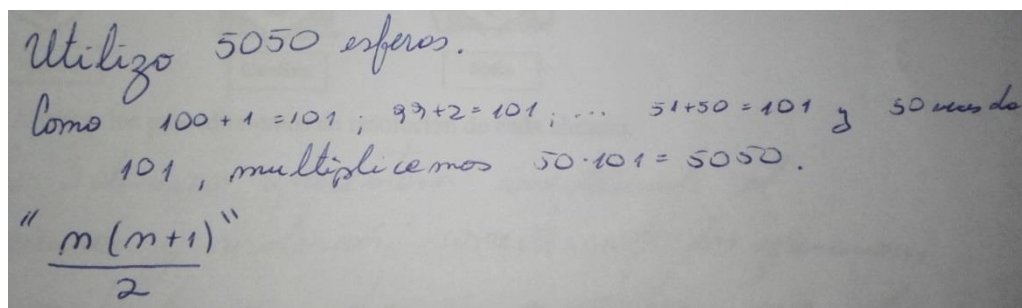 Utilizo 5050 esferas.
Como 100+1=101; 99+2=101; ... 51+50=101 y 50 veces da
101, multiplicamos 50·101=5050.
"n(n+1)"
2